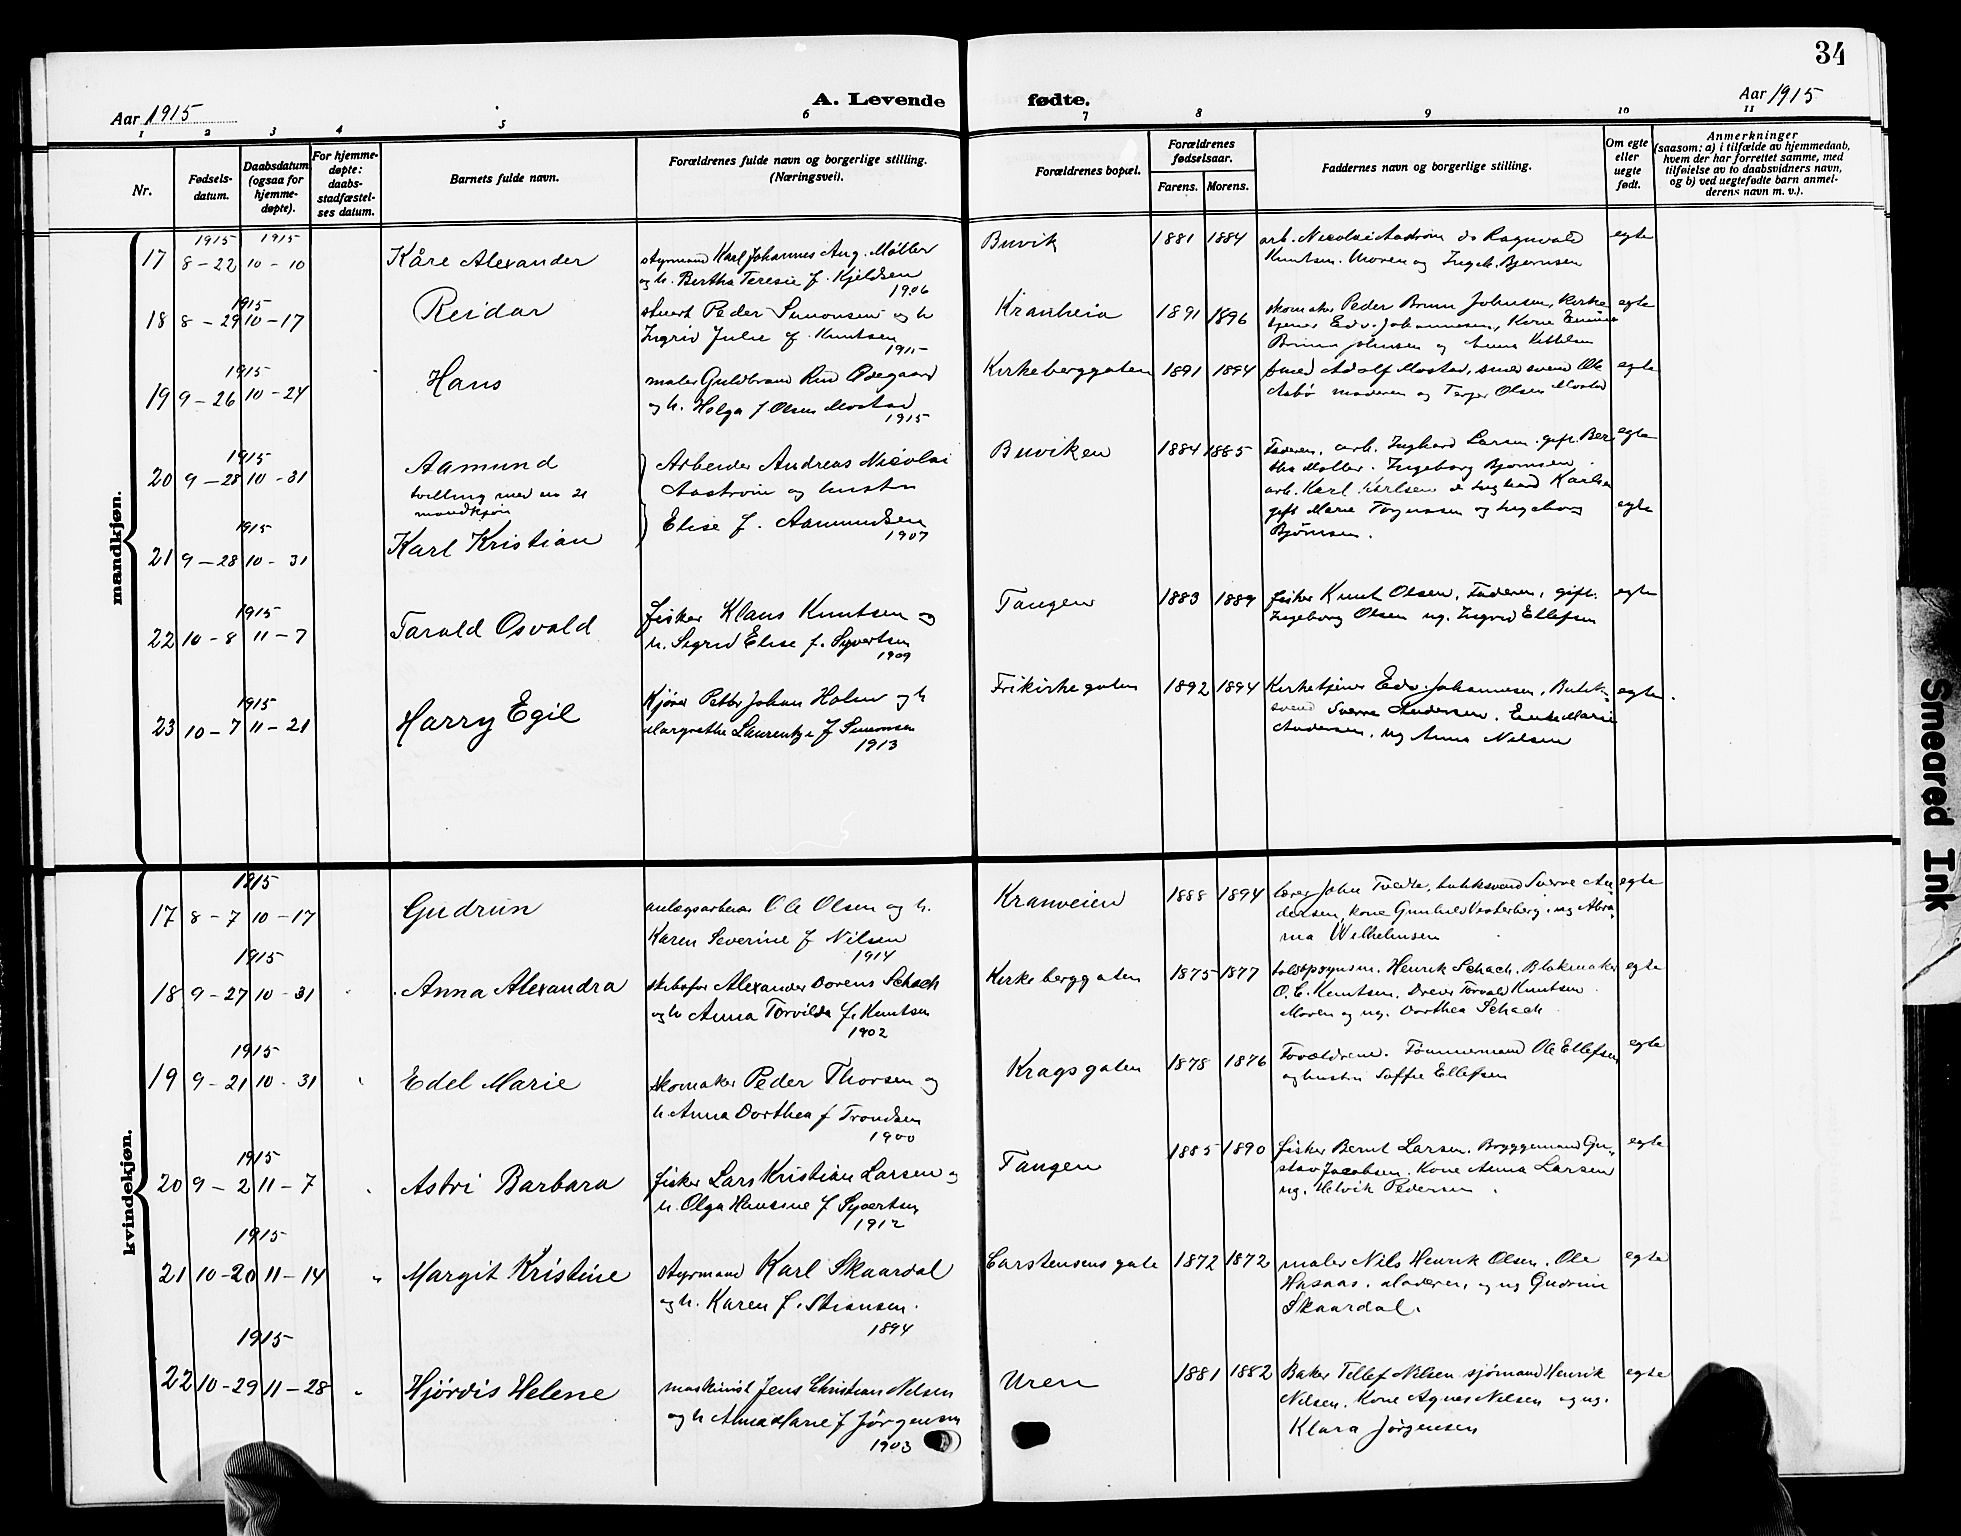 34
Aar 1915
A. Levende fødte.
Aar 1915
1 2 3 4 5 6 7 8 9 10 11
Nr.
Fødsels-
datum.
Daabsdatum
(ogsaa for
hjemme-
døpte).
For hjemme-
døpte:
daabs-
stadfæstel-
ses datum.
Barnets fulde navn.
Forældrenes fulde navn og borgerlige stilling.
(Næringsvei).
Forældrenes bopæl.
Forældrenes
fødselsaar.
Farens. Morens.
Faddernes navn og borgerlige stilling.
Om egte
eller
uegte
født.
Anmerkninger
(saasom: a) i tilfælde av hjemmedaab,
hvem der har forrettet samme, med
tilføielse av to daabsvidners navn,
og b) ved uegtefødte barn anmel-
derens navn m. v.).
mandkjøn.
1915 1915
17 8-22 10-10 Kåre Alexander
styrmand Karl Johannes Aug. Møller
og h. Bertha Teresie f. Kjeldsen
1906
Buvik 1881 1884
arb. Nicolai Aastrøm do Ragnvald
Knutsen. Moren og Ingeb. Bjørnsen
egte
1915
18 8-29 10-17 Reidar
stuert Peder Simonsen og h
Ingrid Julie f. Knutsen
1915
Kranheia 1891 1896
skomaker Peder Brun Johnsen, kirke
tjener Edv. Johannesen, Kone Emma
Bruun Johnsen og Anna Kittelsen
egte
1915
19 9-26 10-24 Hans
maler Guldbrand Rud Ødegaard
og h. Helga f Olsen Mostad
1915
Kirkeberggaten 1891 1894
smed Adolf Mostad, smedsvend Ole
Aasbø moderen og Terje Olsen Mostad
egte
1915
20 9-28 10-31 Aamund
tvilling med no 21
mandkjøn
Arbeider Andreas Nicolai
Aastrøm og hustru
Elise f. Aamundsen
1907
Buviken 1884 1885
Faderen, arb. Inghard Larsen. gift Ber
tha Møller. Ingeborg Bjørnsen.
egte
1915
21 9-28 10-31 Karl Kristian
arb. Karl Karlsen & Inghard Karlsen
gift Marie Tørgersen og Ingeborg
Bjørnsen.
egte
1915
22 10-8 11-7 Tarald Osvald
fisker Klaus Knutsen og
h. Sigrid Elise f. Syvertsen
1909
Tangen 1883 1889
fisker Knut Olsen, Faderen, gift.
Ingeborg Olsen ug. Ingrid Ellefsen
egte
1915
23 10-7 11-21 Harry Egil
Kjører Petter Johan Holm og h
Margrethe Laurentze f Simonsen
1913
Frikirkegaten 1892 1894
Kirketjener Edv. Johannesen, Butik-
svend Sverre Andersen. Emilie Marie
Andersen, ug Anna Nelsen
egte.
kvindekjøn.
1915
17 8-7 10-17 Gudrun
anlægsarbeider Ole Olsen og h.
Karen Severine f Nilsen
1914
Kranveien 1888 1894
lærer John Tvedte, butiksvend Sverre An
dersen, kone Gunhild Vesterberg, ug Abra-
ma Wilhelmsen
egte
1915
18 9-27 10-31 Anna Alexandra
skibsfører Alexander Dorens Schach
og h Anna Torvilda f. Knutsen
1902
Kirkeberggaten 1875 1877
toldopsynsm. Henrik Schach. Blokmaker
O. C. Knutsen. Dreier Torvald Knutsen
Moren og ug. Dorthea Schach.
egte
1915
19 9-21 10-31 Edel Marie
skomaker Peder Thorsen og
h Anna Dorthea f Trondsen
1900
Kragsgaten 1878 1876
Forældrene. Tømmermand Ole Ellefsen
og hustru Soffie Ellefsen
egte
1915
20 9-2 11-7 Astri Barbara
fisker Lars Kristian Larsen og
h. Olga Hansine f Syvertsen
1912
Tangen 1885 1890
fisker Bernt Larsen. Bryggemand Gu-
stav Jacobsen. Kone Anna Larsen
ug. Helvik Pedersen.
egte
1915
21 10-20 11-14 " Margit Kristine
styrmand Karl Skaardal
og h. Karen f. Stiansen.
1894
Carstensensgate 1872 1872
maler Nils Henrik Olsen. Ole
Hasaas. Moderen, og ug Gudrun
Skaardal.
egte
1915
22 10-29 11-28 " Hjørdis Helene
maskinist Jens Christian Nelsen
og h Alma Marie f Jørgensen
1903
Uren 1881 1882
Baker Tellef Nilsen sjømand Henrik
Nilsen. Kone Agnes Nilsen og ug.
Klara Jørgensen
egte
Smeared Ink